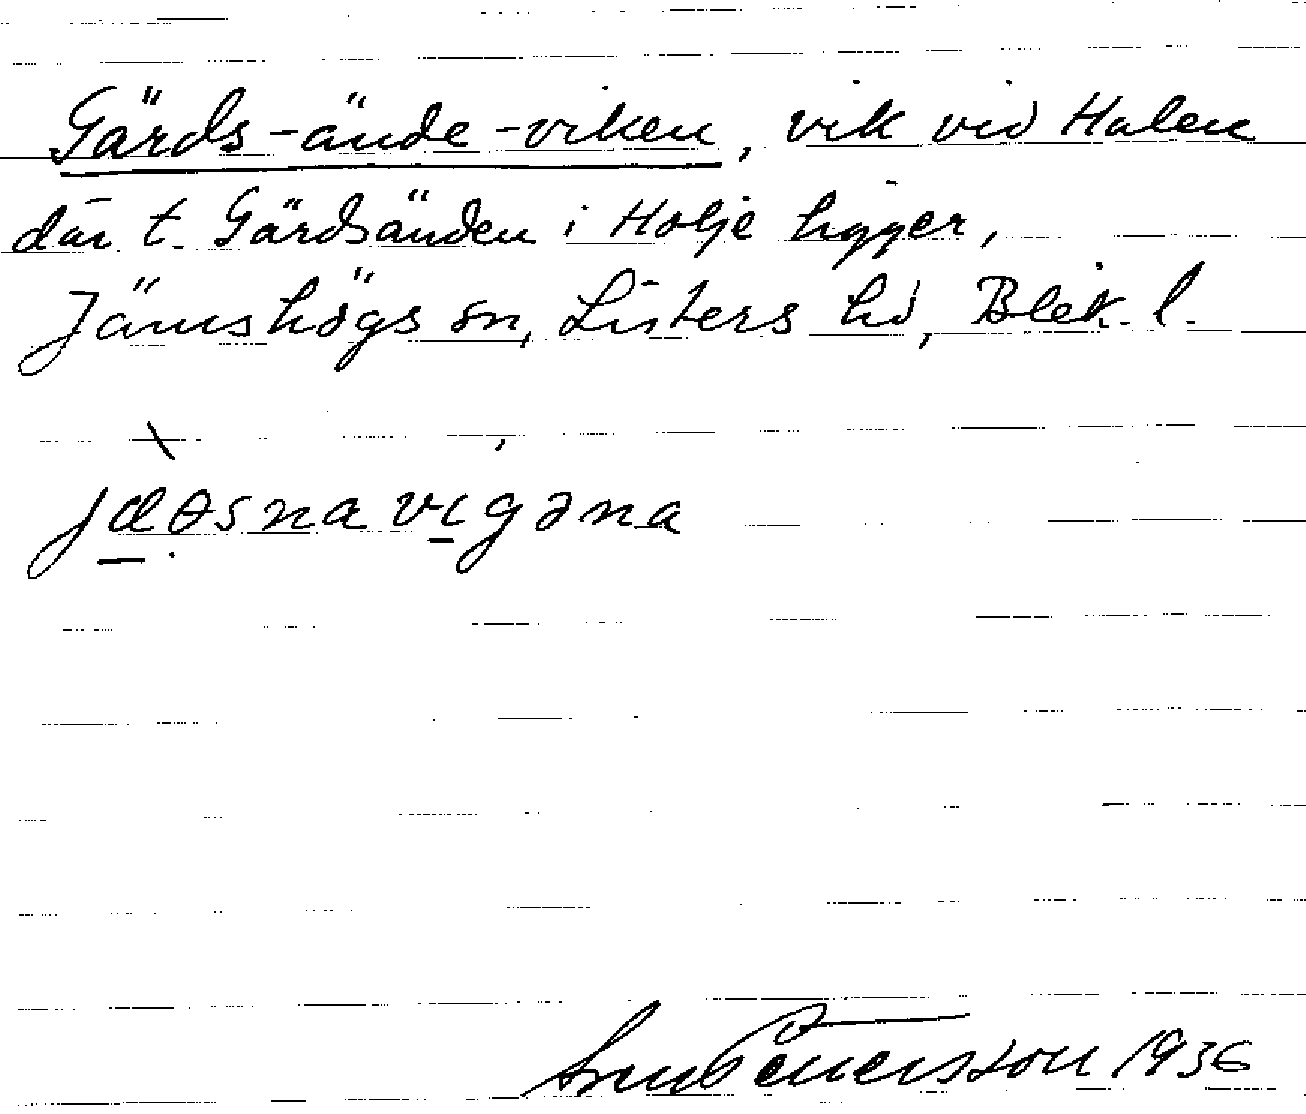 Gärds-ände-viken, vik vid Halen
där t. Gärdsänden i Holje ligger,
Jämshögs sn, Listers hd, Blek. l.
jæəsnavigəna
1936